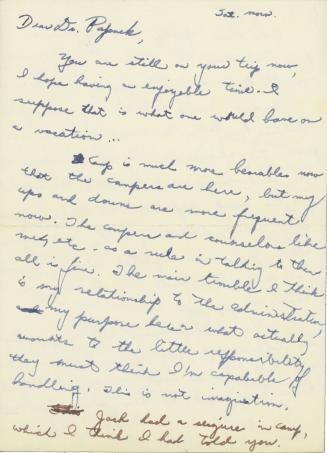 Sat. morn.
Dear Dr. Papanek,
You are still on your trip now,
I hope having an enjoyable time. I
suppose that is what one would have on
a vacation...
Camp is much more bearable now
that the campers are here, but my
ups and downs are more frequent
now. The campers and counselors like
me, etc. as a rule in talking to them
all is fine. The main trouble I think
is my relationship to the administration,
my purpose here what actually
amounts to the little responsibility
they must think I'm capable of
handling. This is not imagination.
Jack had a seizure in camp,
which I think I had told you.